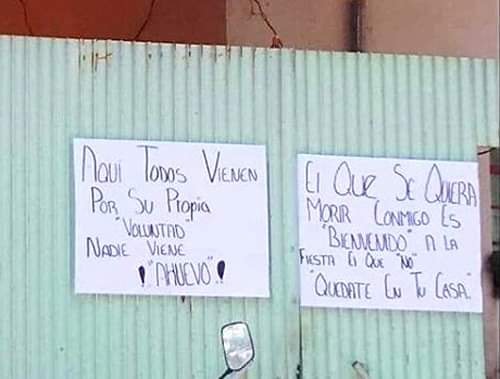 AQUI TODOS VIENEN
POR SU PROPIA
"VOLUNTAD
NADIE VIENE
¡¡"AHUEVO"!!
El QUE SE QUIERA
MORIR CONMIGO ES
"BIENVENIDO" A LA
FIESTA El QUE "NO"
"QUEDATE EN TU CASA."